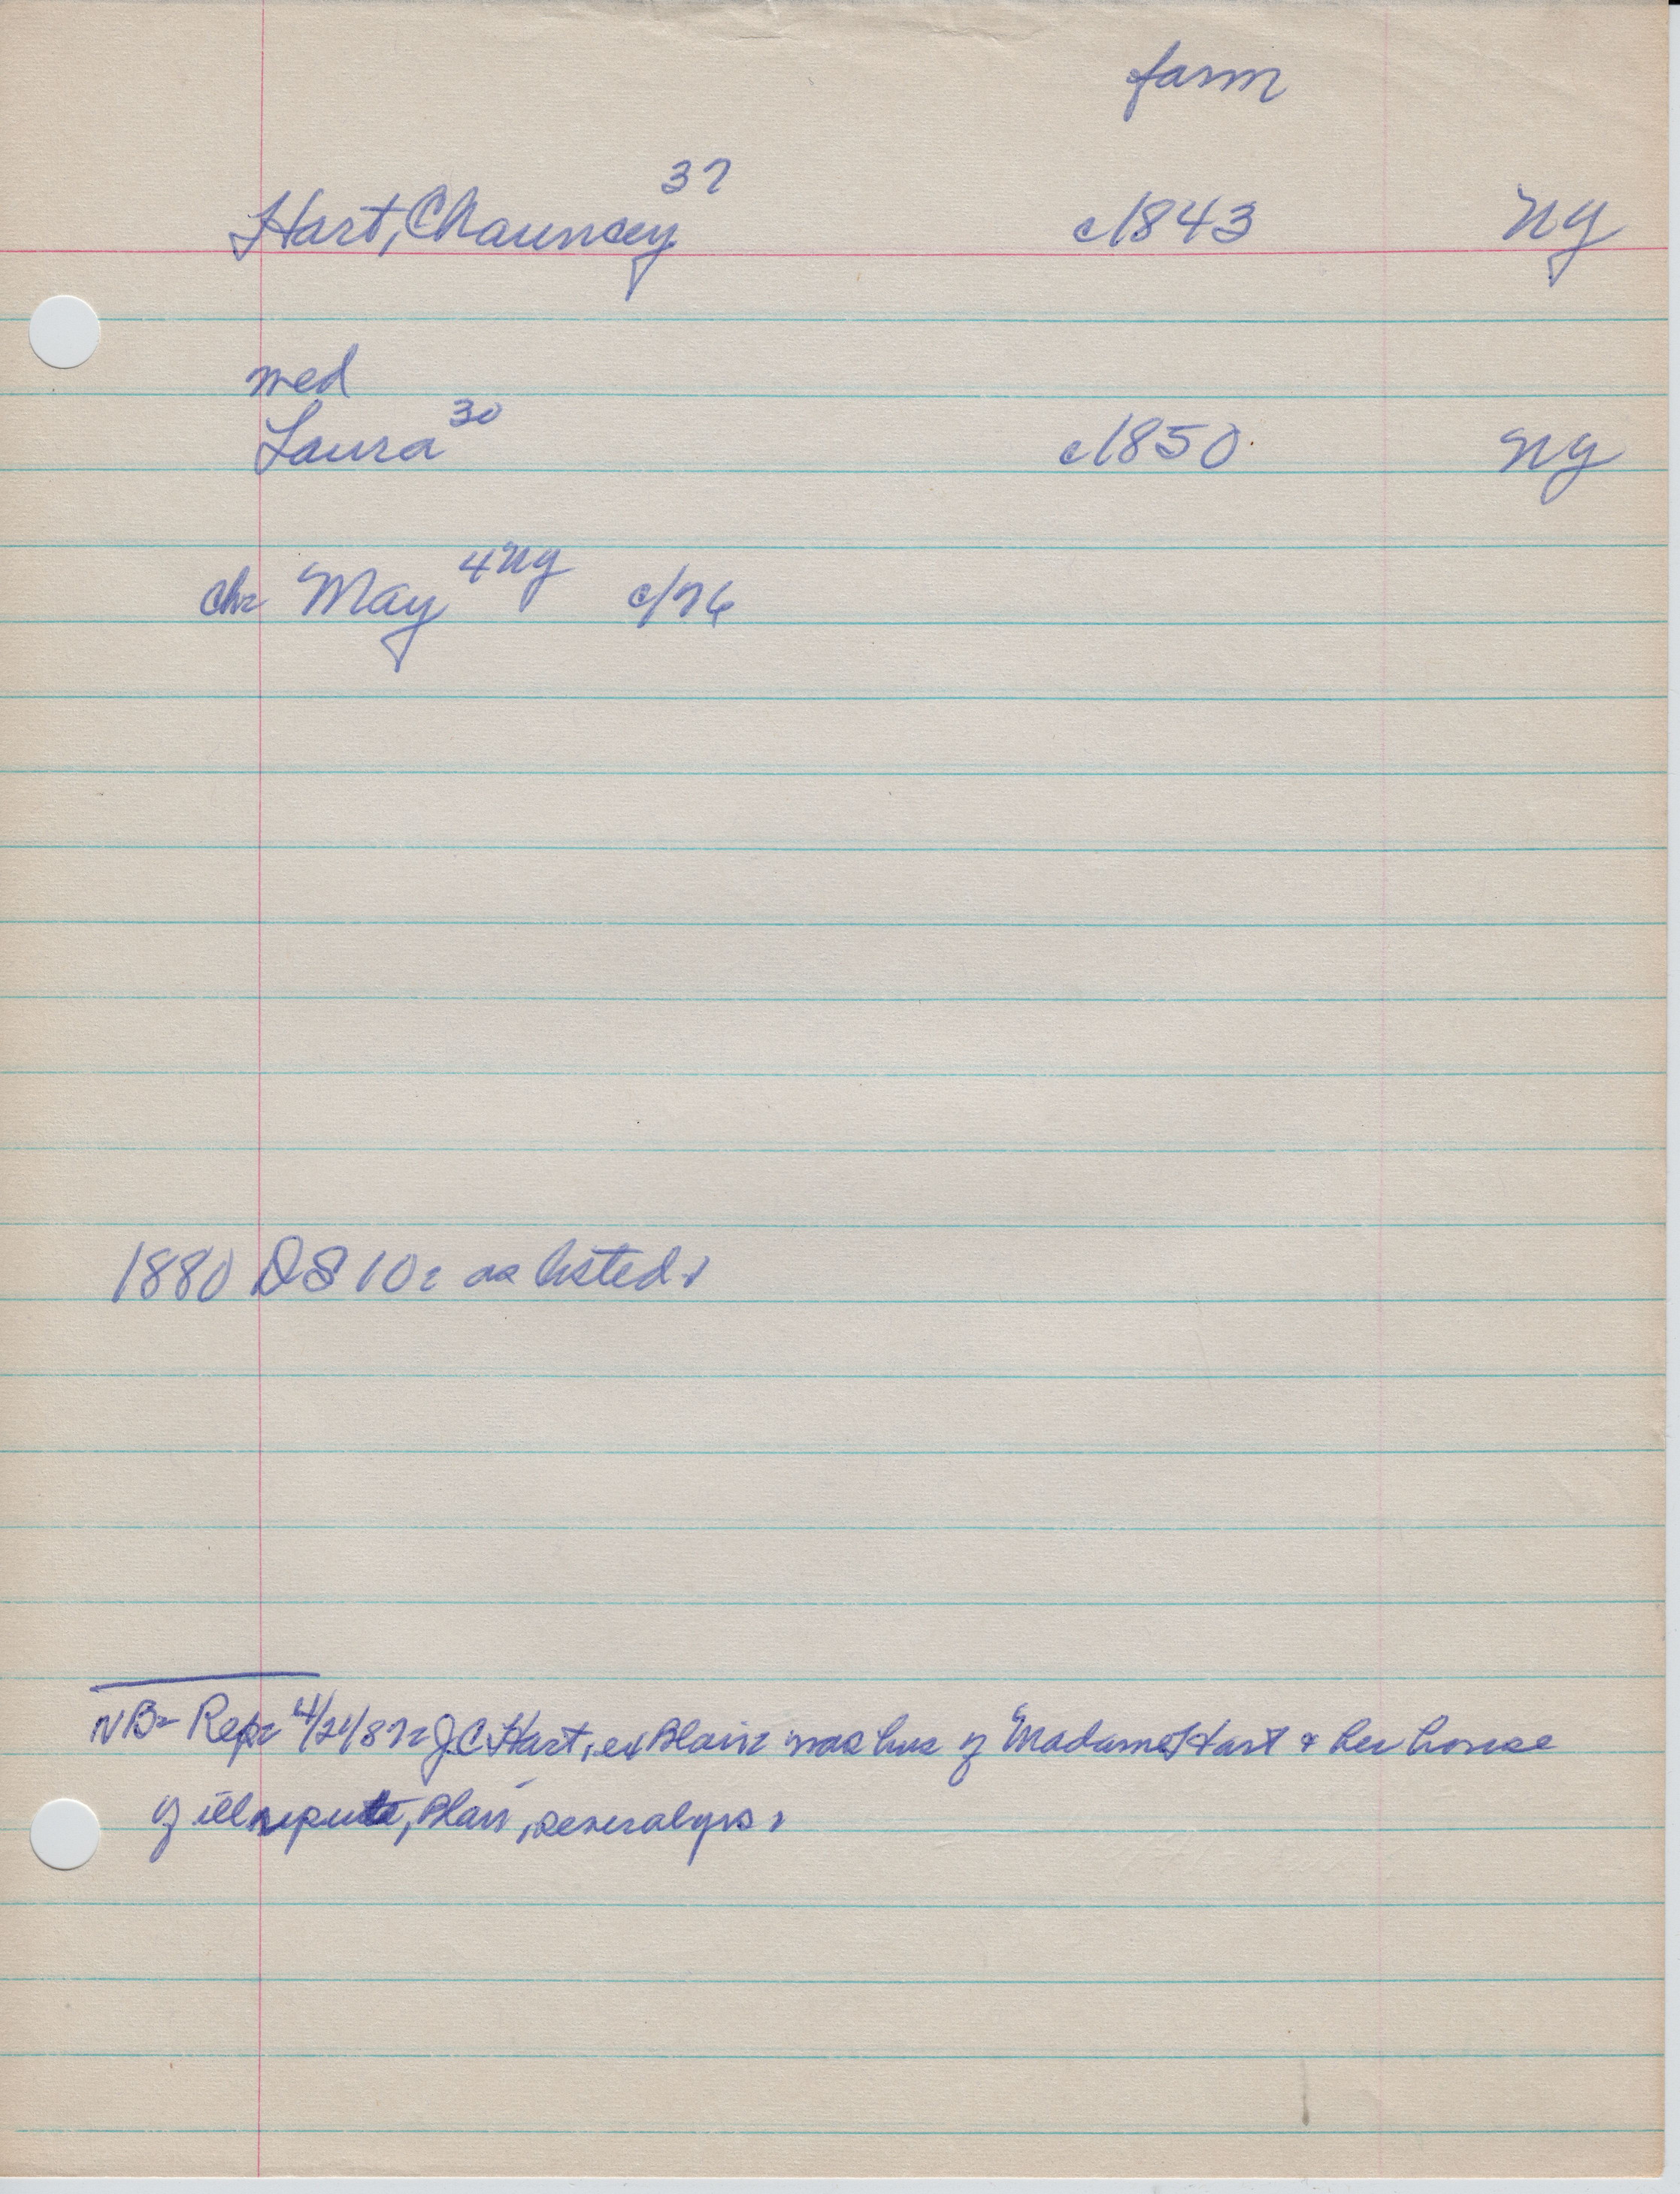 farm
Hart, Chauncey 37 c1843 NY
med
Laura 30 c1850 NY
ch- May 4 NY c/76
1880 DS 10: as listed.
NB- Rep- 4/21/87- J.C. Hart, ex Blair- was hus- of "Madame Hart & her house
of ill repute, Blair, several yrs.